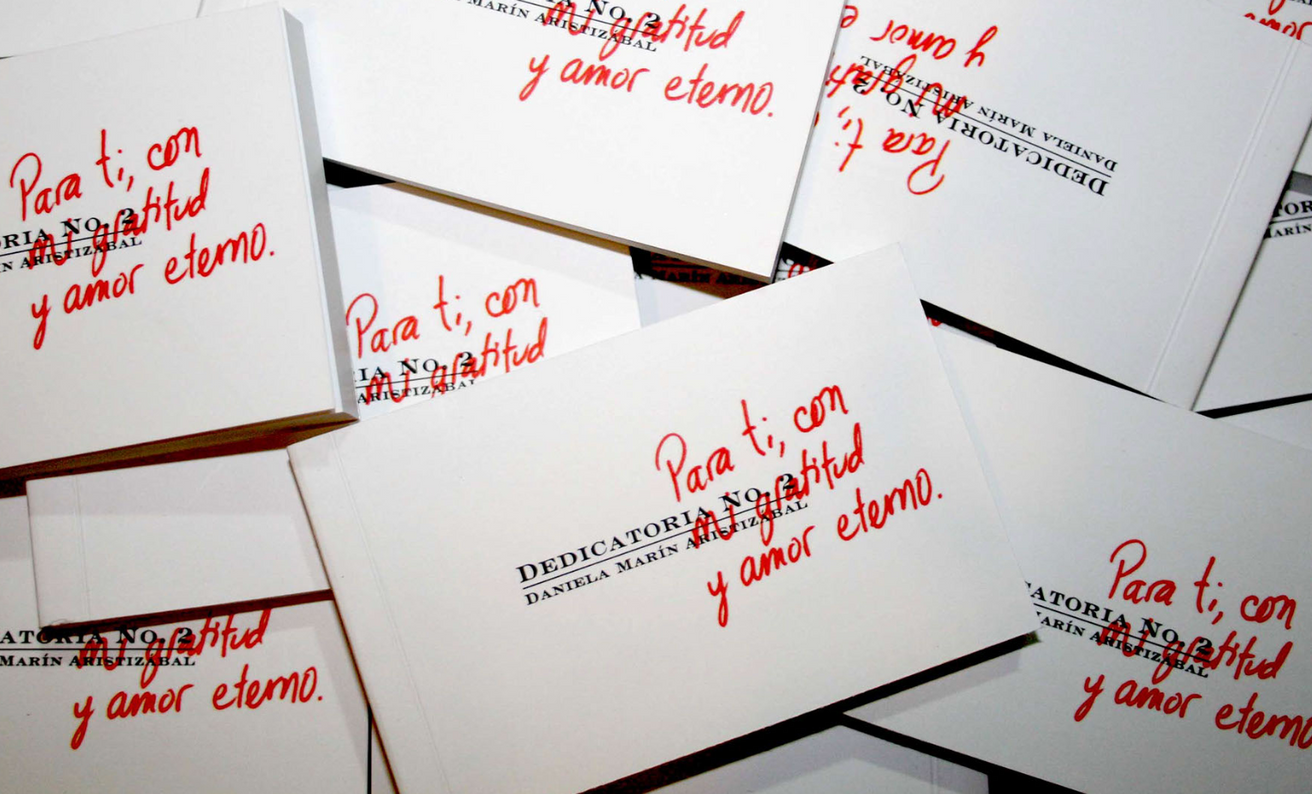 MI gratitud
A No. 2
MARÍN ARISTIZÁBAL
y amor eterno.
Para ti, con
mi gratitud
y amor e
DEDICATORIA No. 2
DANIELA MARÍN ARISTIZÁBAL
amor
Para ti, con
RIA No. 2
mi gratitud
N ARISTIZÁBAL
y amor eterno.
TOR
MARÍN
Para ti, con
IA No. 2
mi gratitud
ARISTIZÁBAL
Para ti, con
mi gratitud
y amor eterno.
DEDICATORIA No. 2
DANIELA MARÍN ARISTIZÁBAL
ATORIA No. 2
mi gratitud
MARÍN ARISTIZÁBAL
y amor eterno.
Para ti, con
CATORIA No. 2
mi gratitud
MARÍN ARISTIZÁBAL
y amor eterno